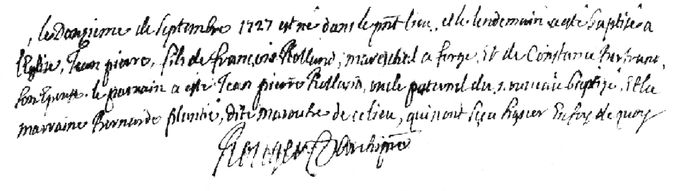 le Donzieme de septembre 1727 est né dans le pnt lieu, et le lendemain a esté baptisé a
l'Eglise, Jean pierre, fils de françois Rolland, mareschal a forge, et de Constance Bertrand,
son Epouse. le parrain a esté Jean pierre Rolland, oncle paternel du nouveau baptisé, et la
marraine Bernarde dite de ce lieu, qui n'ont sçeu signer En foy de quoy